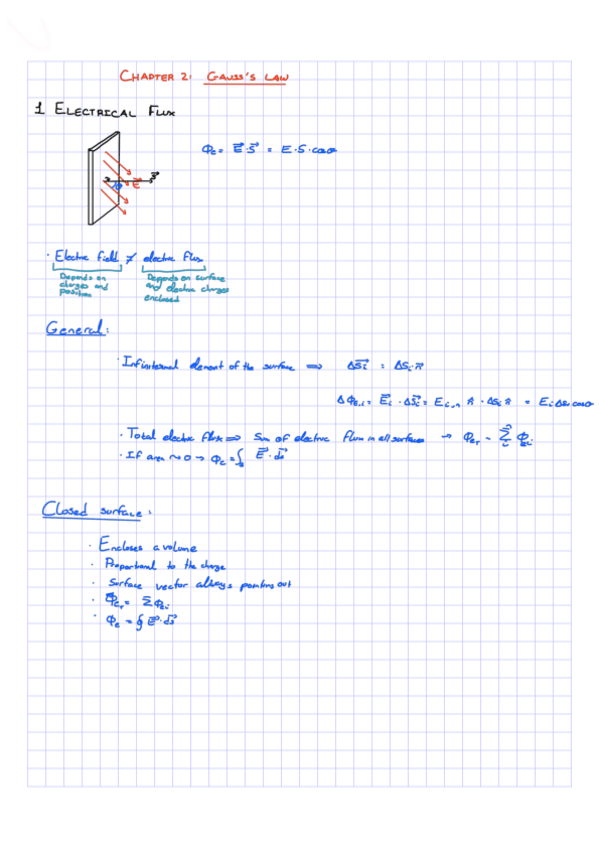 CHAPTER 2: GAUSS'S LAW
1 ELECTRICAL FLUX
Φe = E⃗ · S⃗ = E · S · cosθ
θ E⃗ S⃗
· Electric field ≠ electric flux
Depends on charges and position
Depends on surface and electric charges enclosed
General:
· Infinitesimal element of the surface ⟹ ΔS⃗i = ΔSi · n⃗
ΔΦe,i = E⃗i · ΔS⃗i = Ei,n n⃗ · ΔSi n⃗ = Ei ΔSi cosθ
· Total electric flux ⟹ Sum of electric flux in all surfaces → ΦeT = Σ Φei
· If area ~ 0 → Φe = ∫s E⃗ · ds⃗
Closed surface:
· Encloses a volume
· Proportional to the charge
· Surface vector always pointing out
· ΦeT = Σ Φei
· Φe = ∮ E⃗ · ds⃗